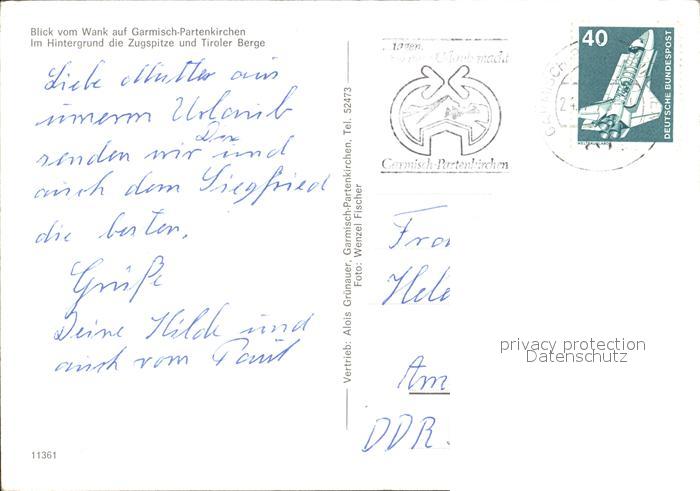 Blick vom Wank auf Garmisch-Partenkirchen
Im Hintergrund die Zugspitze und Tiroler Berge
Liebe Mutter aus
unserm Urlaub
senden wir Dir und
auch dem Siegfried
die besten.
Grüße
Deine Hilde und
auch vom Paul
11361
Vertrieb: Alois Grünauer, Garmisch-Partenkirchen, Tel. 52473
Foto: Wenzel Fischer
Urlaub macht
Garmisch-Partenkirchen
GARMISCH
40
DEUTSCHE BUNDESPOST
Fra
Hele
Am
DDR.
privacy protection
Datenschutz